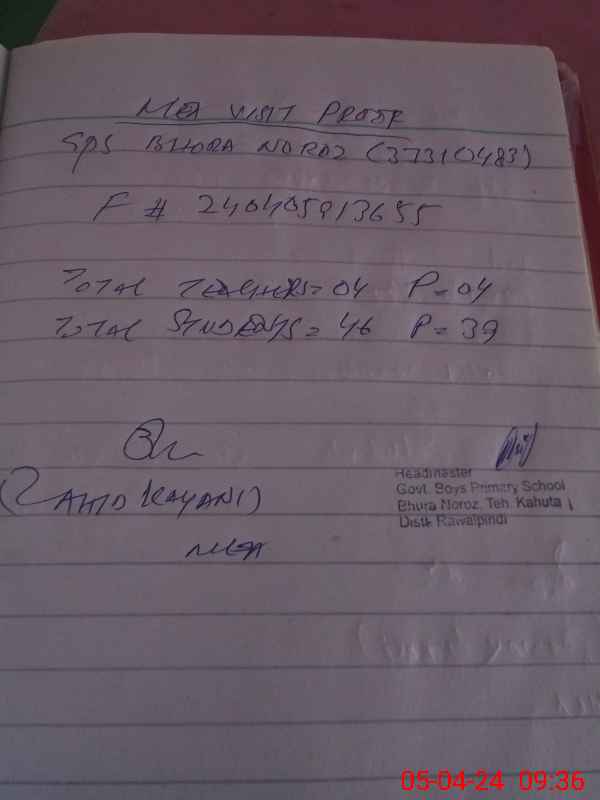 MEA VISIT PROOF
GPS BHORA NOROZ (37310483)
F # 240405913655
TOTAL TEACHERS = 04 P = 04
TOTAL STUDENTS = 46 P = 39
(ZAHID KAYANI)
MEA
Headmaster
Govt. Boys Primary School
Bhura Noroz, Teh. Kahuta
Distt. Rawalpindi
05-04-24 09:36